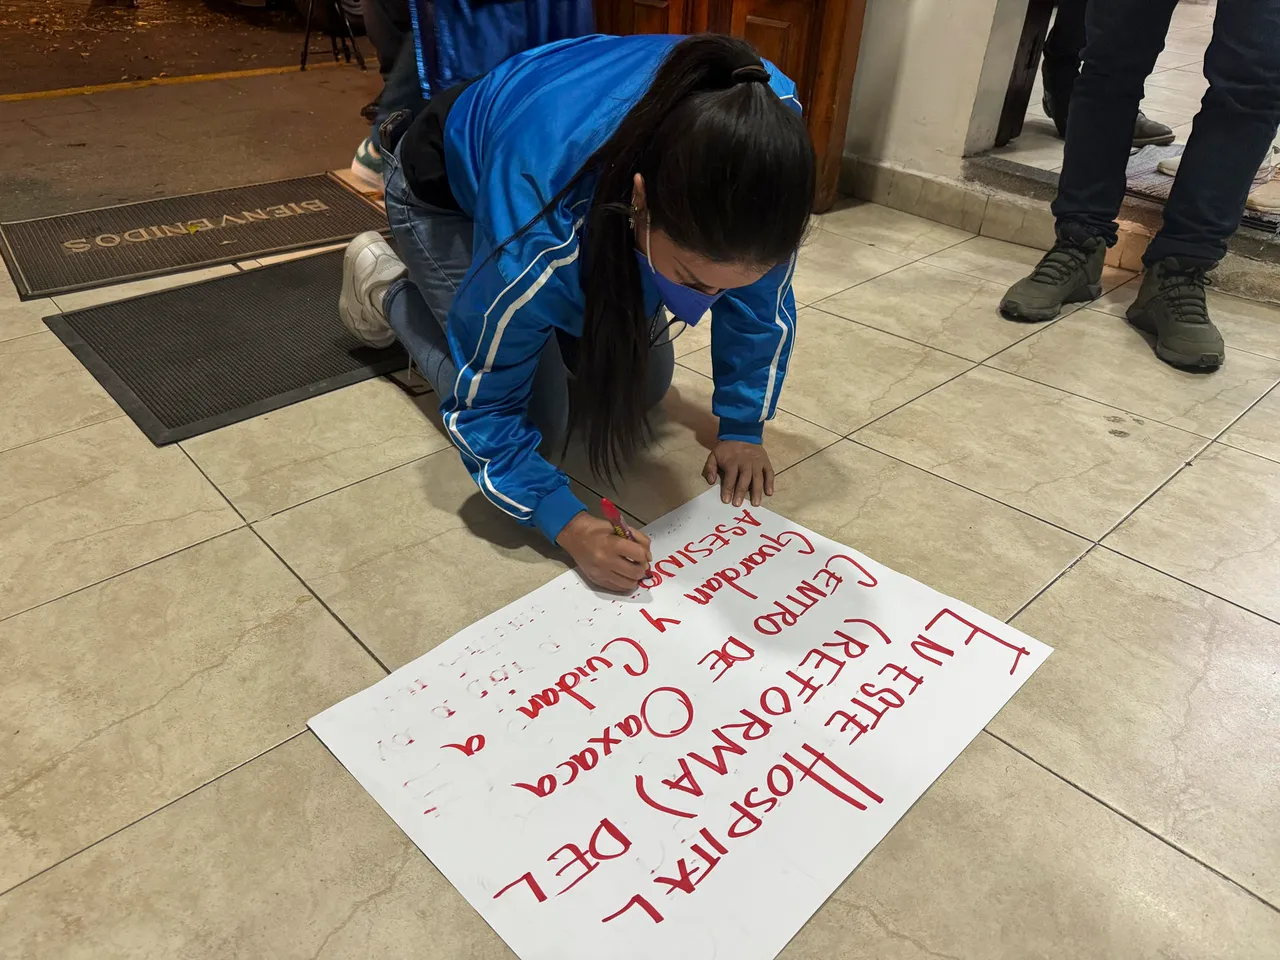 BIENVENIDOS
EN ESTE HOSPITAL
(REFORMA) DEL
CENTRO DE Oaxaca
Guardan y Cuidan a
ASESINO